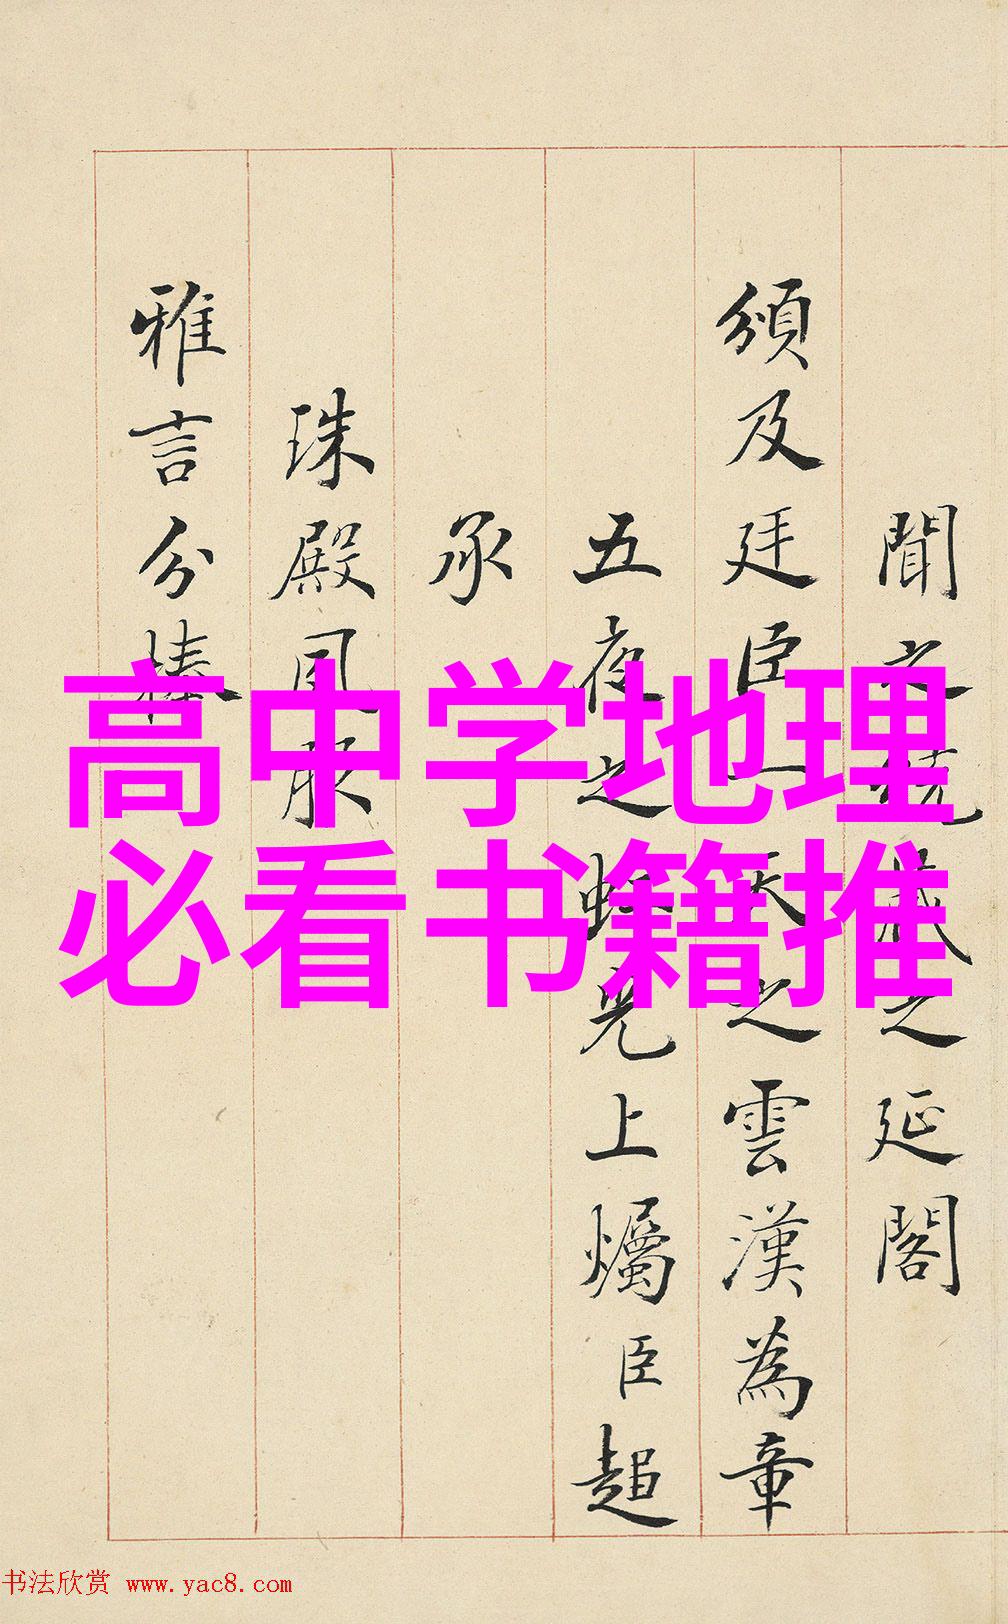 高中学地理
必看书籍推
聞文統歲之延閣
頒及廷臣一天之雲漢為章
五夜之虹光上燭臣超
承
珠殿風服
雅言分捧
书法欣赏 www.yac8.com